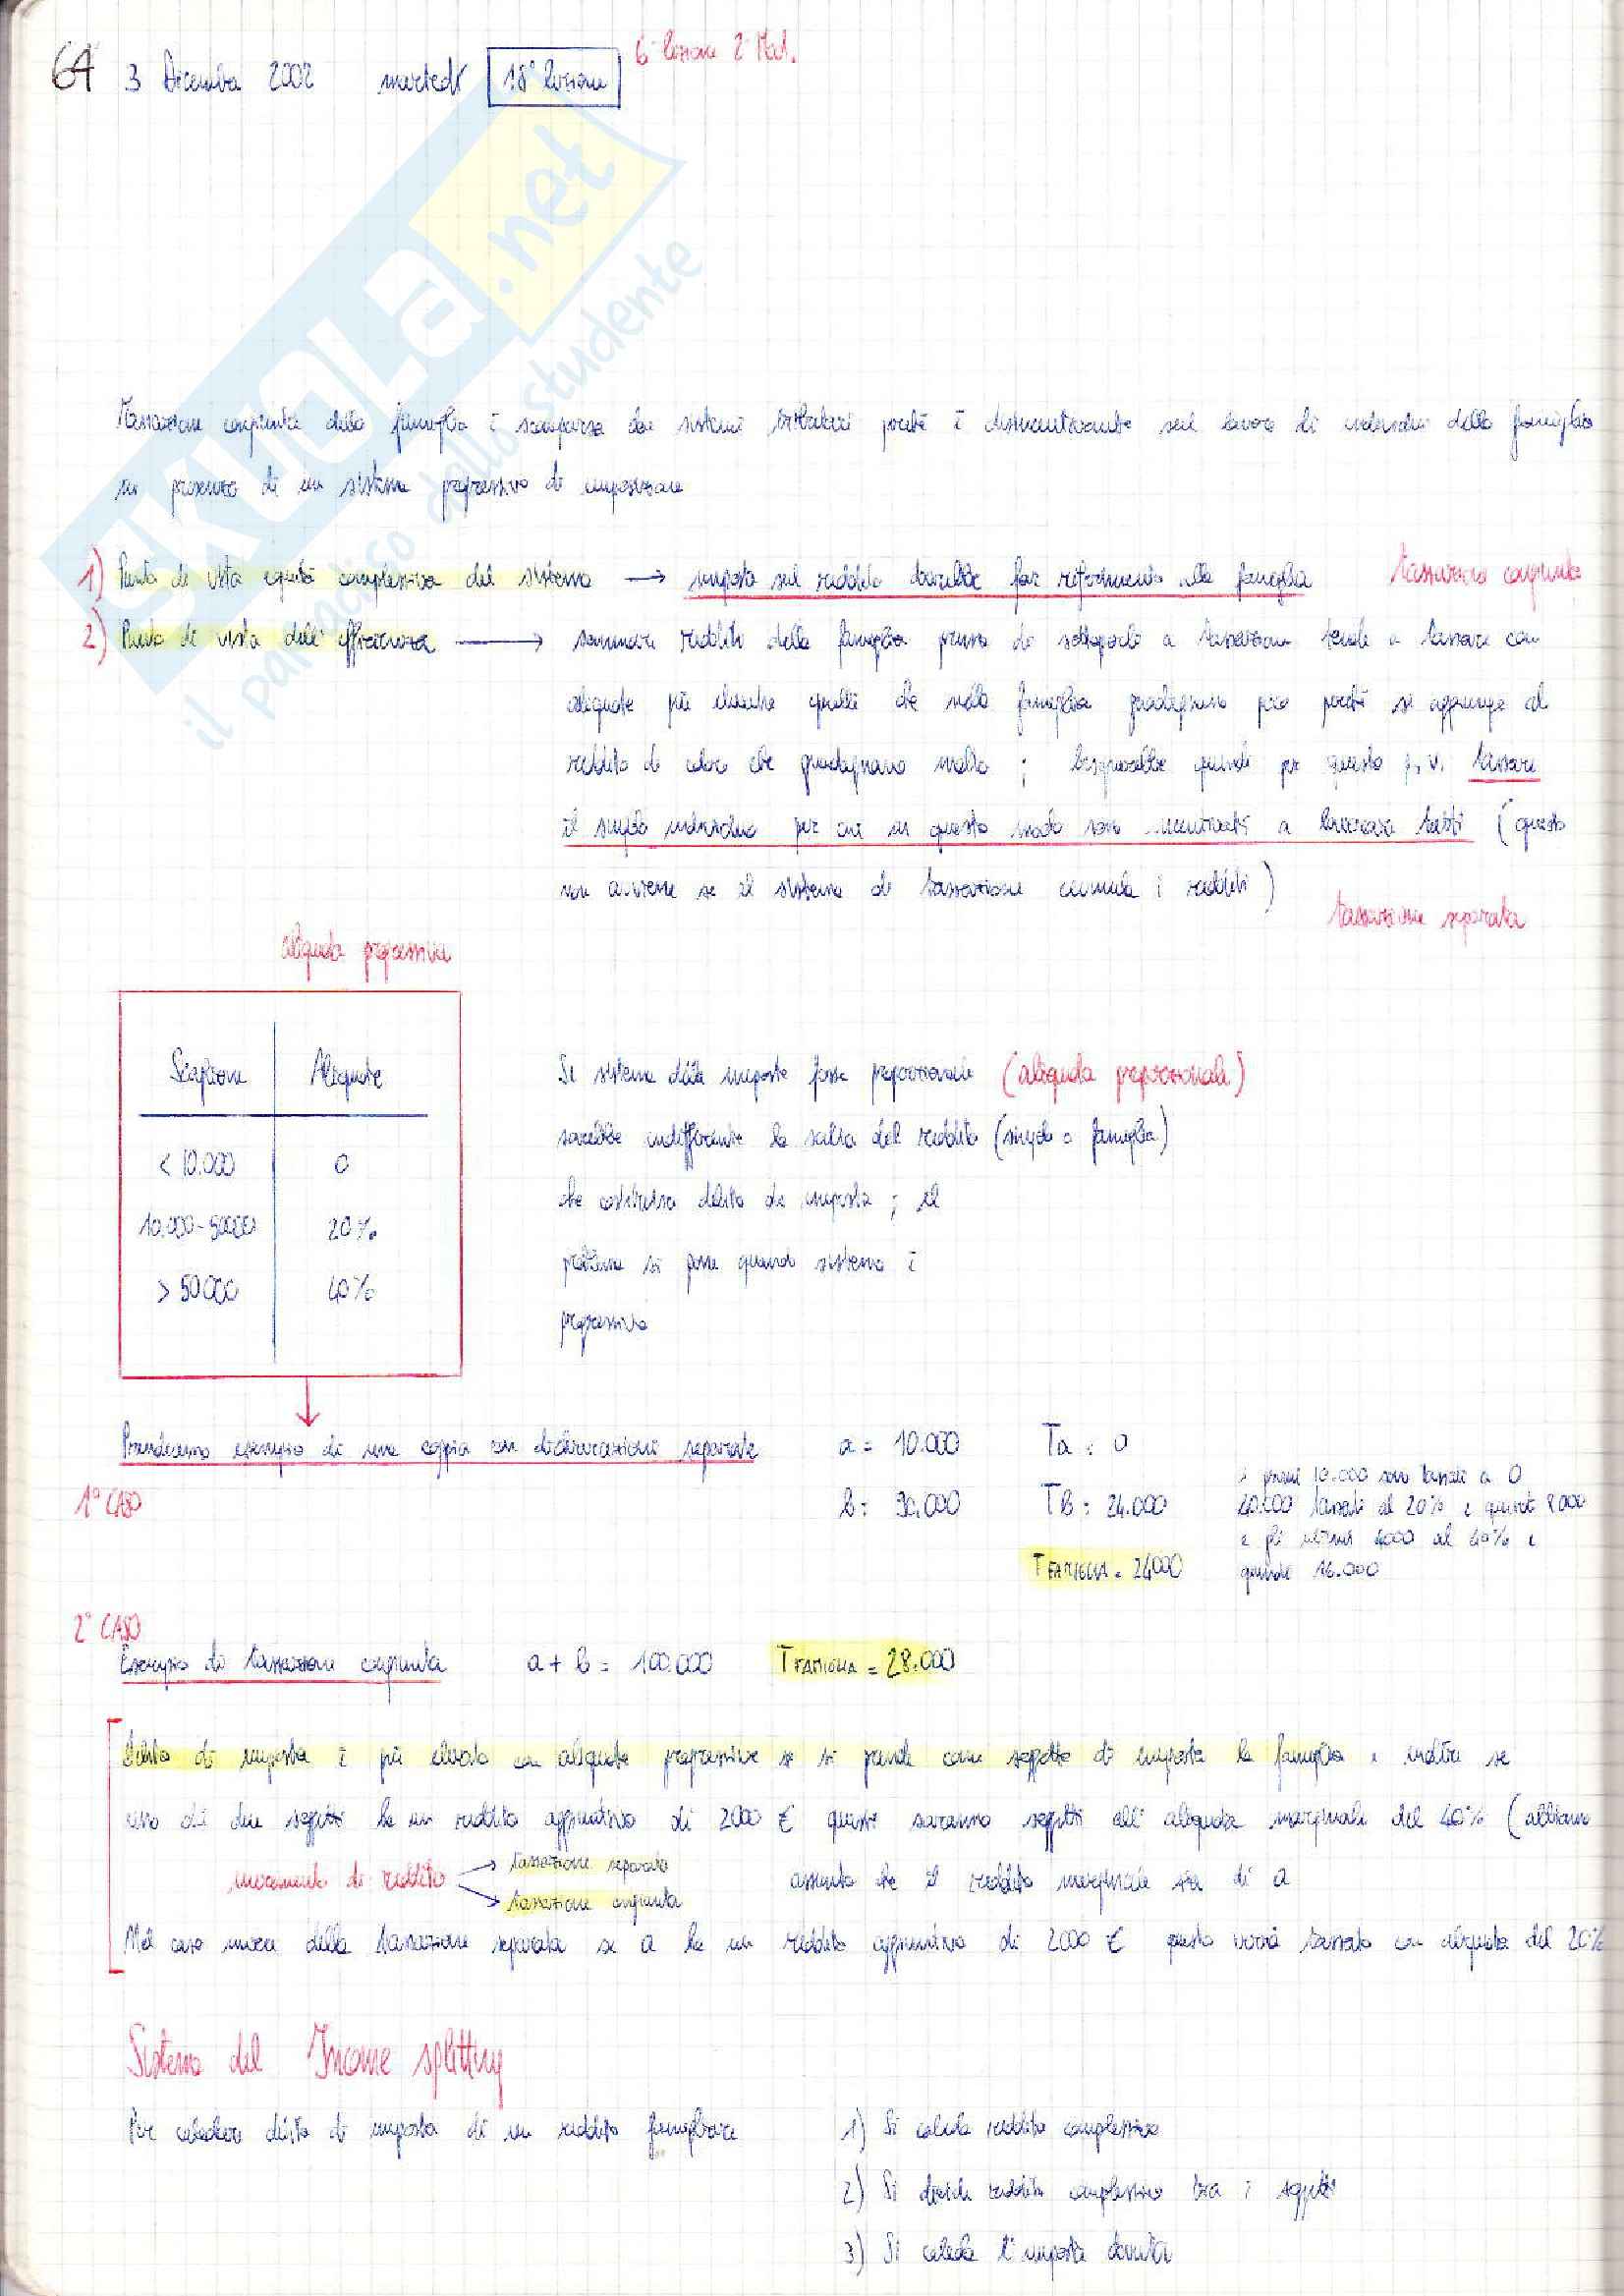 64 3 Dicembre 2002 martedì 18° lezione 6° lezione 2° Mod.
SKUOLA.net
il paradiso dello studente
Tassazione congiunta della famiglia è scomparsa dai sistemi tributari perché è disincentivante sul lavoro di individui della famiglia
in presenza di un sistema progressivo di imposizione
1) Punto di vista equità complessiva del sistema → imposta sul reddito dovrebbe far riferimento alla famiglia tassazione congiunta
2) Punto di vista dell'efficienza → sommare reddito della famiglia prima di sottoporlo a tassazione tende a tassare con
aliquote più elevate quelli che nella famiglia guadagnano poco perché si aggiunge al
reddito di coloro che guadagnano molto ; bisognerebbe quindi per questo p.v. tassare
il singolo individuo per cui in questo modo sono incentivati a lavorare tutti (questo
non avviene se il sistema di tassazione cumula i redditi)
tassazione separata
aliquota progressiva
Scaglione Aliquote
< 10.000 0
10.000-50000 20%
> 50000 40%
Se sistema delle imposte fosse proporzionale (aliquota proporzionale)
sarebbe indifferente la scelta del reddito (singolo o famiglia)
che costituisce debito di imposta ; il
problema si pone quando sistema è
progressivo
Prendiamo esempio di una coppia con dichiarazioni separate a = 10.000 Ta = 0
1° CASO b = 90.000 TB = 24.000
i primi 10.000 sono tassati a 0
40.000 tassati al 20% e quindi 8000
e gli ultimi 4000 al 40% e
quindi 16.000
TFAMIGLIA = 24000
2° CASO
Esempio di tassazione congiunta a + b = 100.000 TFAMIGLIA = 28.000
Debito di imposta è più elevato con aliquote progressive se si prende come soggetto di imposta la famiglia e inoltre se
uno dei due soggetti ha un reddito aggiuntivo di 2000 € questi saranno soggetti all'aliquota marginale del 40% (abbiamo
incremento di reddito → tassazione separata
→ tassazione congiunta
assunto che il reddito marginale sia di a
Nel caso invece della tassazione separata se a ha un reddito aggiuntivo di 2000 € questo verrà tassato con aliquota del 20%
Sistema del Income splitting
Per calcolare debito di imposta di un reddito famigliare 1) Si calcola reddito complessivo
2) Si divide reddito complessivo tra i soggetti
3) Si calcola l'imposta dovuta